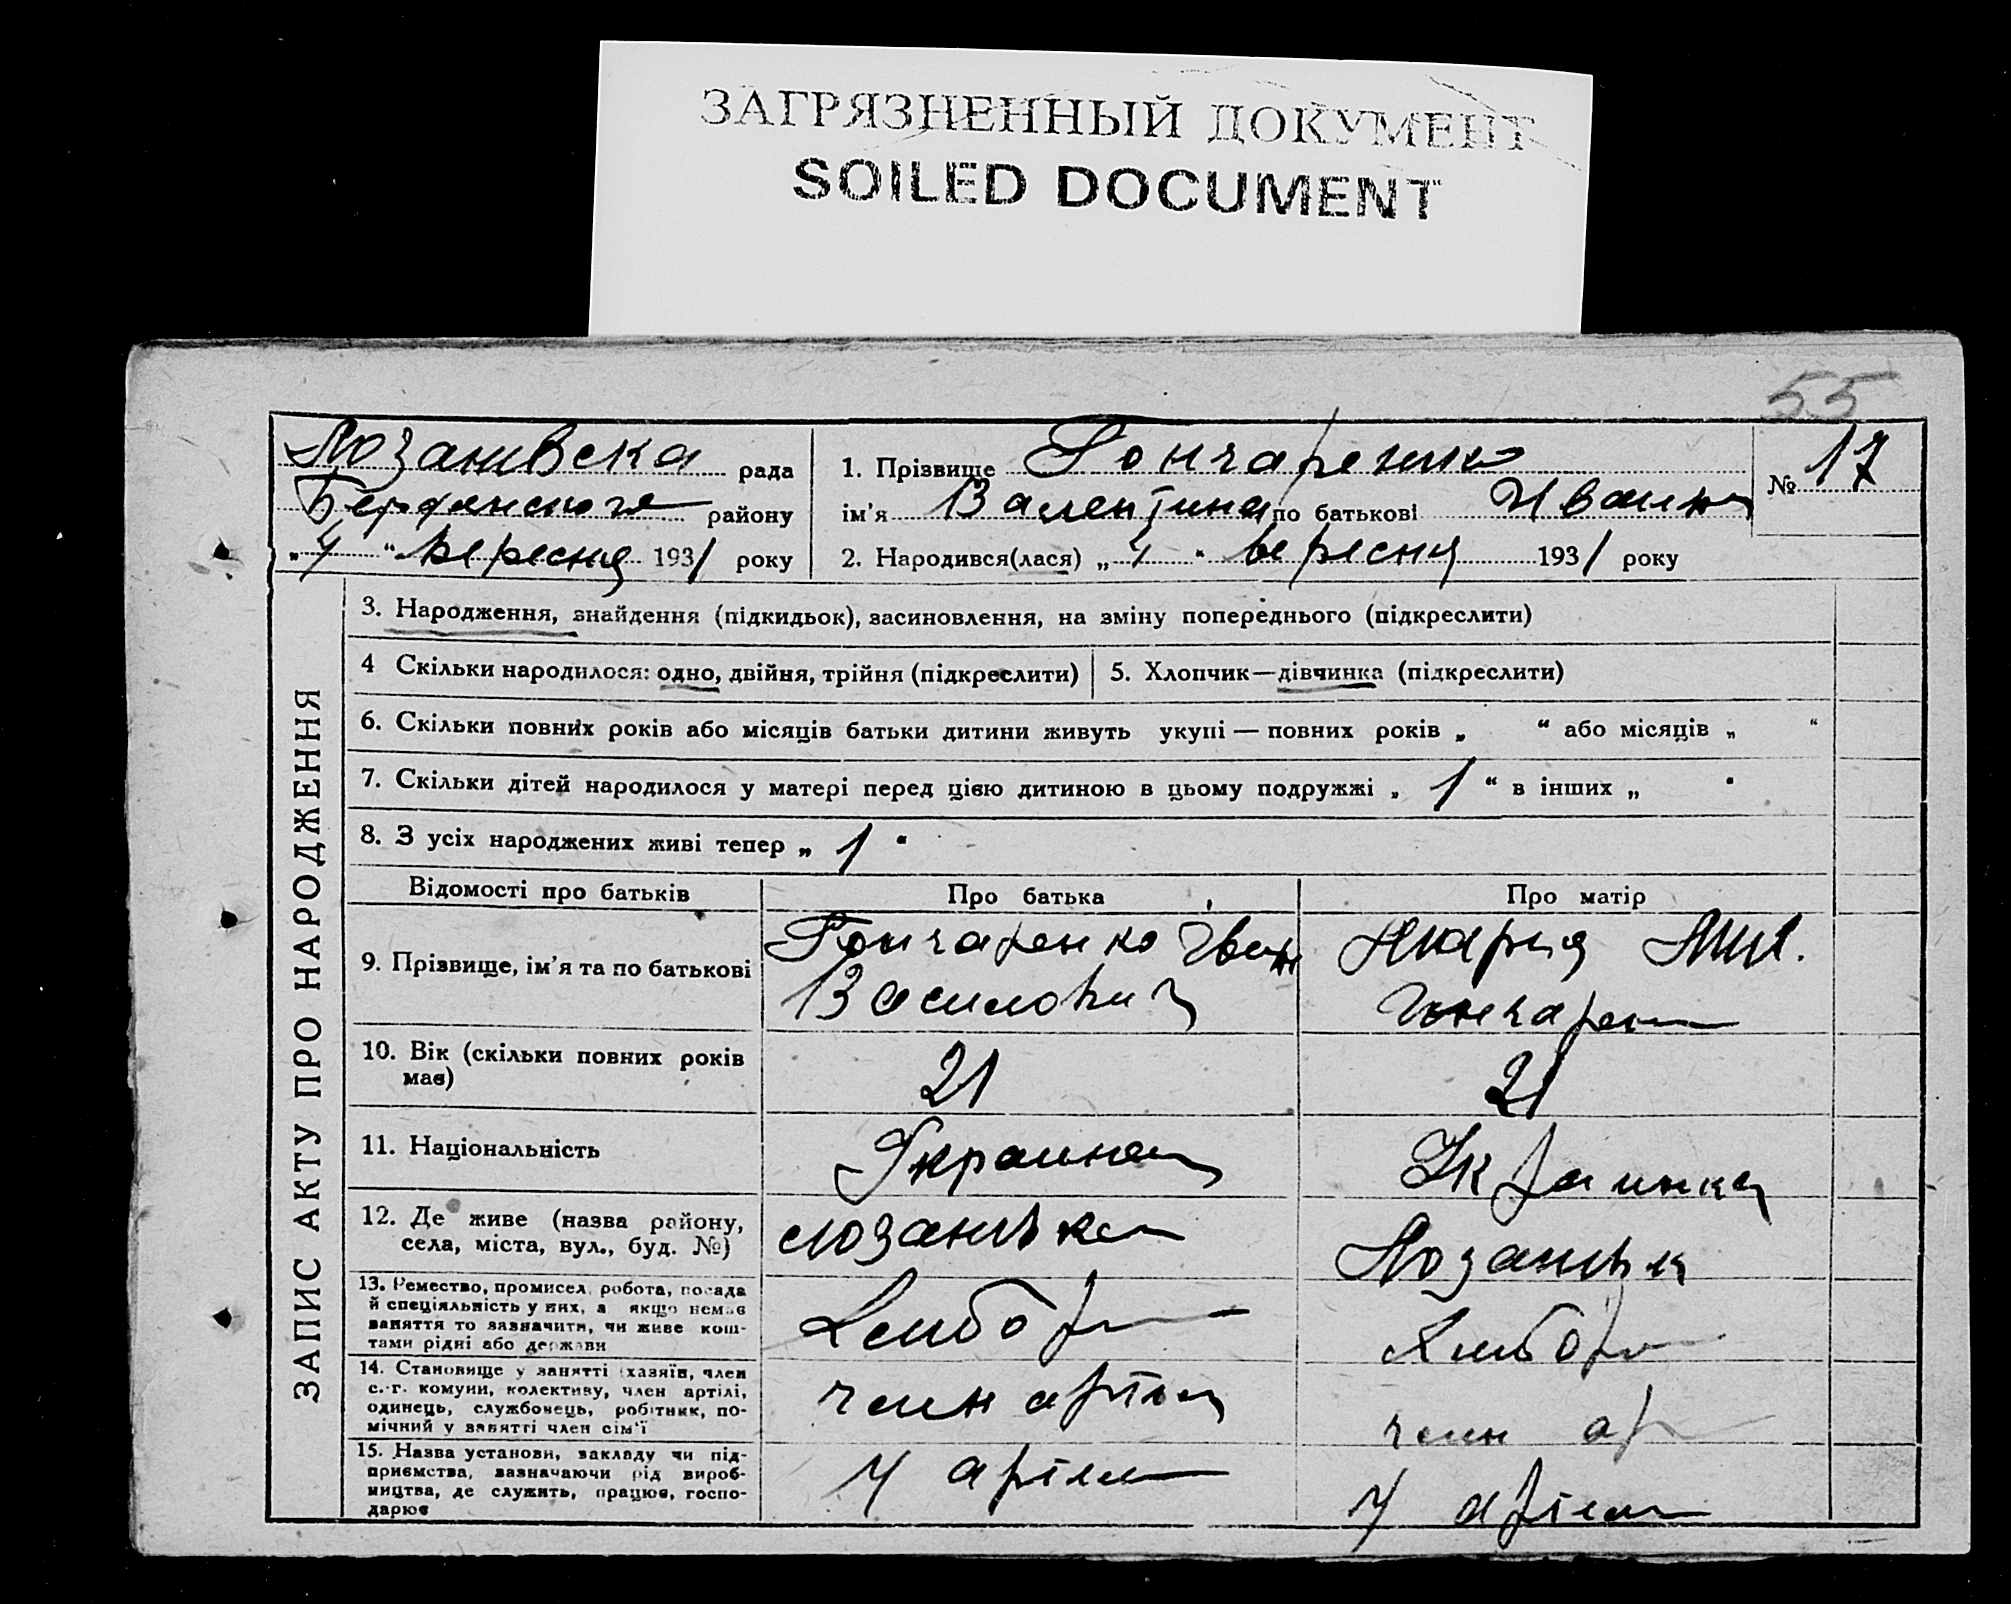 ЗАГРЯЗНЕННЫЙ ДОКУМЕНТ
SOILED DOCUMENT
55
Лозанівска рада
Бердянського району
„4“ вересня 1931 року
1. Прізвище Гончаренко
ім'я Валентина по батькові Ивани
2. Народився(лася) „4“ вересня 1931 року
№ 17
ЗАПИС АКТУ ПРО НАРОДЖЕННЯ
3. Народження, знайдення (підкидьок), засиновлення, на зміну попереднього (підкреслити)
4 Скільки народилося: одно, двійня, трійня (підкреслити)
5. Хлопчик—дівчинка (підкреслити)
6. Скільки повних років або місяців батьки дитини живуть укупі — повних років „ “ або місяців „ “
7. Скільки дітей народилося у матері перед цією дитиною в цьому подружжі „ 1 “ в інших „ “
8. З усіх народжених живі тепер „ 1 “
Відомості про батьків
Про батька
Про матір
9. Прізвище, ім'я та по батькові
Гончаренко Іван
Василович
Мария Мих.
Гончарен
10. Вік (скільки повних років
має)
21
21
11. Національність
Украинец
Украинка
12. Де живе (назва району,
села, міста, вул., буд. №)
лозанівка
Лозанівк
13. Ремество, промисел, робота, посада
й спеціяльність у них, а якщо немає
заняття то зазначити, чи живе кош-
тами рідні або держави
Хлибор
Хлибор
14. Становище у занятті (хазяїн, член
с.-г. комуни, колективу, член артілі,
одинець, службовець, робітник, по-
мічний у занятті член сім'ї
член артіли
член ар
15. Назва установи, закладу чи під-
приємства, зазначаючи рід вироб-
ництва, де служить, працює, госпо-
дарює
У артіли
У артіли